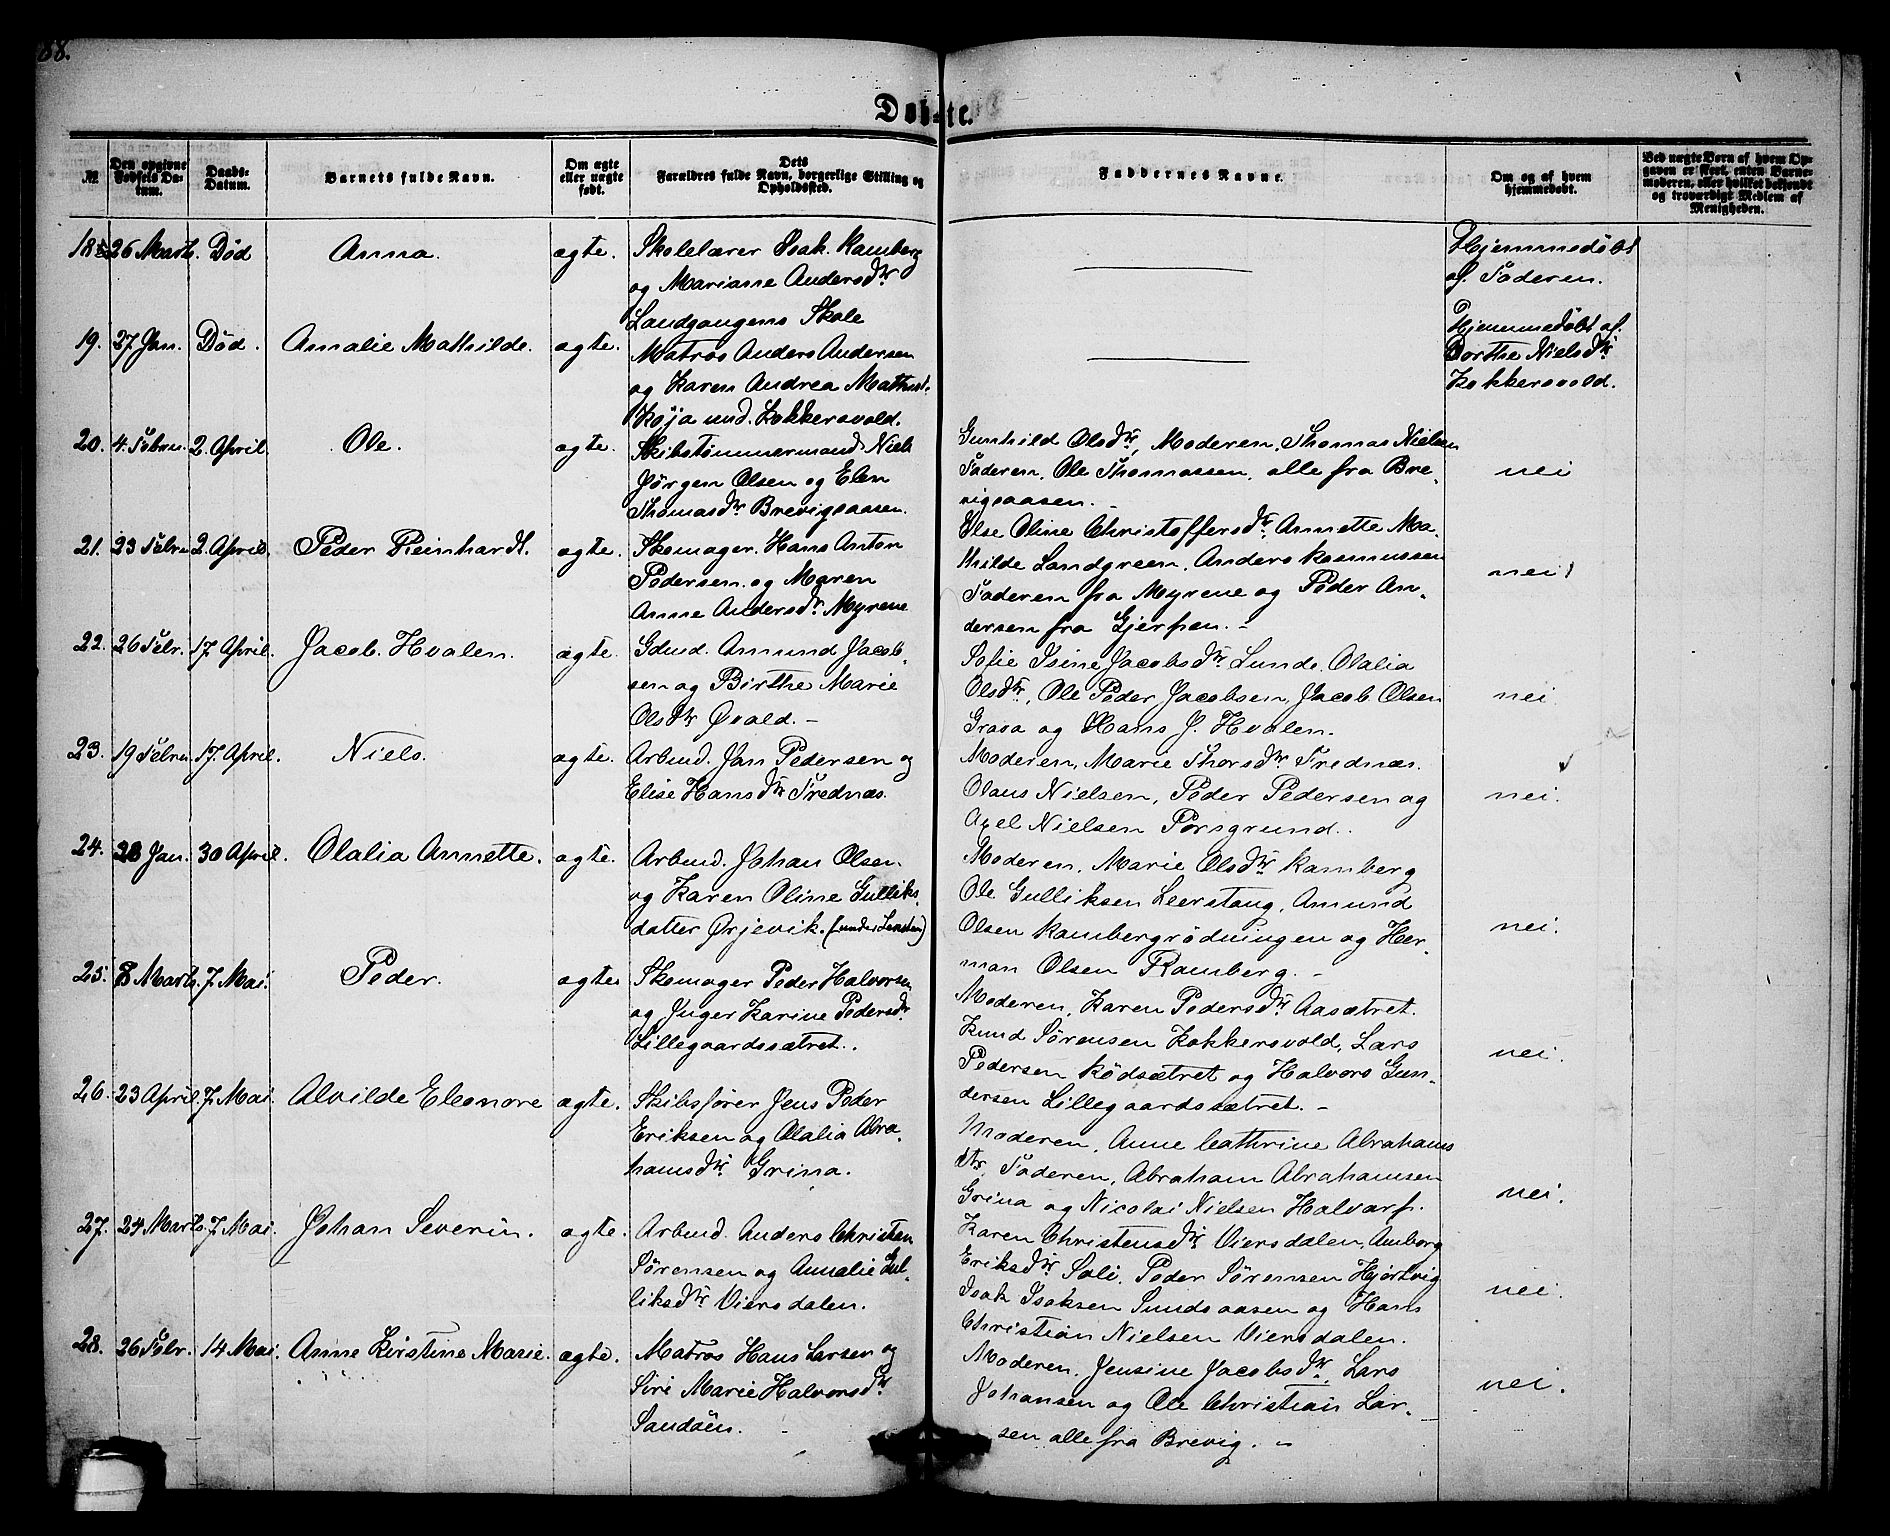 88.
Døbte.
№
Den opgivne Fødsels Datum.
Daabs-Datum.
Barnets fulde Navn.
Om ægte eller uægte født.
Dets Forældres fulde Navn, borgerlige Stilling og Opholdssted.
Faddernes Navne.
Om og af hvem hjemmedøbt.
Ved uægte Børn af hvem Opgaven er skeet, enten Barnemoderen, eller hvilket bekjendt og troværdigt Medlem af Menigheden.
18 26 Marts. Død Anna. ægte.
Skolelærer Isak Ramberg
og Marianne Andersdtr
Landgangens Skole
Hjemmedøbt
af Faderen.
19. 27 Jan. Død. Amalie Mathilde. ægte.
Matros Anders Andersen
og Karen Andrea Mathis.
Køja und. Kokkersvold.
Hjemmedøbt af
Dorthe Nielsdtr
Kokkersvold.
20. 4. Febru. 2. April. Ole. ægte.
Skibstømmermand Niels
Jørgen Olsen og Elen
Thomasdtr Brevigaasen.
Gunhild Olsdtr, Moderen, Thomas Nielsen
Faderen, Ole Thomassen, alle fra Bre-
vigaasen. -
nei
21. 23 Febru 2. April. Peder Reinhardt. ægte.
Skomager. Hans Anton
Pedersen. og Maren
Anne Andersdtr Myrene
Else Oline Christoffersdtr Annette Ma-
thilde Landgreen, Anders Rasmussen
Faderen fra Myrene og Peder An-
dersen fra Gjerpen. -
nei
22. 26 Febr. 17. April. Jacob. Hvalen. ægte.
Gdmd. Amund Jacob-
sen og Birthe Marie
Olsdtr Øvald. -
Sofie Isine Jacobsdtr Lunde, Olalia
Olsdtr, Ole Peder Jacobsen, Jacob Olsen
Grava og Hans J. Hvalen.
nei.
23. 19 Febru. 17. April. Niels. ægte.
Arbmd. Jan Pedersen og
Elise Hansdtr Frednæs.
Moderen, Marie Thorsdtr Frednæs.
Olaus Nielsen, Peder Pedersen og
Axel Nielsen Porsgrund.
nei.
24. 28 Jan. 30 April. Olalia Annette. ægte.
Arbmd. Johan Olsen.
og Karen Oline Gulliks-
datter Ørjevik. (under Lensten)
Moderen, Marie Olsdtr Ramberg
Ole Gulliksen Leerstang, Amund
Olsen Rambergrødningen og Her-
man Olsen Ramberg. -
nei.
25. 8 Marts. 7. Mai. Peder. ægte
Skomager Peder Halvorsen
og Inger Karine Pedersdtr
Lillegaardssætret.
Moderen, Karen Pedersdtr Aasætret.
Knud Sørensen Kokkersvold, Lars
Pedersen Rødsætret og Halvors Gun-
dersen Lillegaardssætret. -
nei.
26. 23 April. 7. Mai. Alvilde Eleonore ægte.
Skibsfører Jens Peder
Eriksen og Olalia Abra-
hamsdtr Grina.
Moderen, Anne Cathrine Abrahams
dtr, Faderen, Abraham Abrahamsen
Grina og Nicolai Nielsen Halvarp.
nei.
27. 24 Marts. 7. Mai. Johan Severin. ægte.
Arbmd. Anders Christen
Sørensen og Annalie Gul-
liksdtr Viersdalen.
Karen Christensdtr Viersdalen, Amborg
Eriksdtr Soli, Peder Sørensen Hjortvig
Isak Isaksen Sundsaasen og Hans
Christian Nielsen Viersdalen.
nei.
28. 26 Febr. 14 Mai. Anne Kirstine Marie. ægte.
Matros Hans Larsen og
Siri Marie Halvorsdtr
Sandøen.
Moderen, Jensine Jacobsdtr, Lars
Johansen og Ole Christian Lar-
sen alle fra Brevig. -
nei.